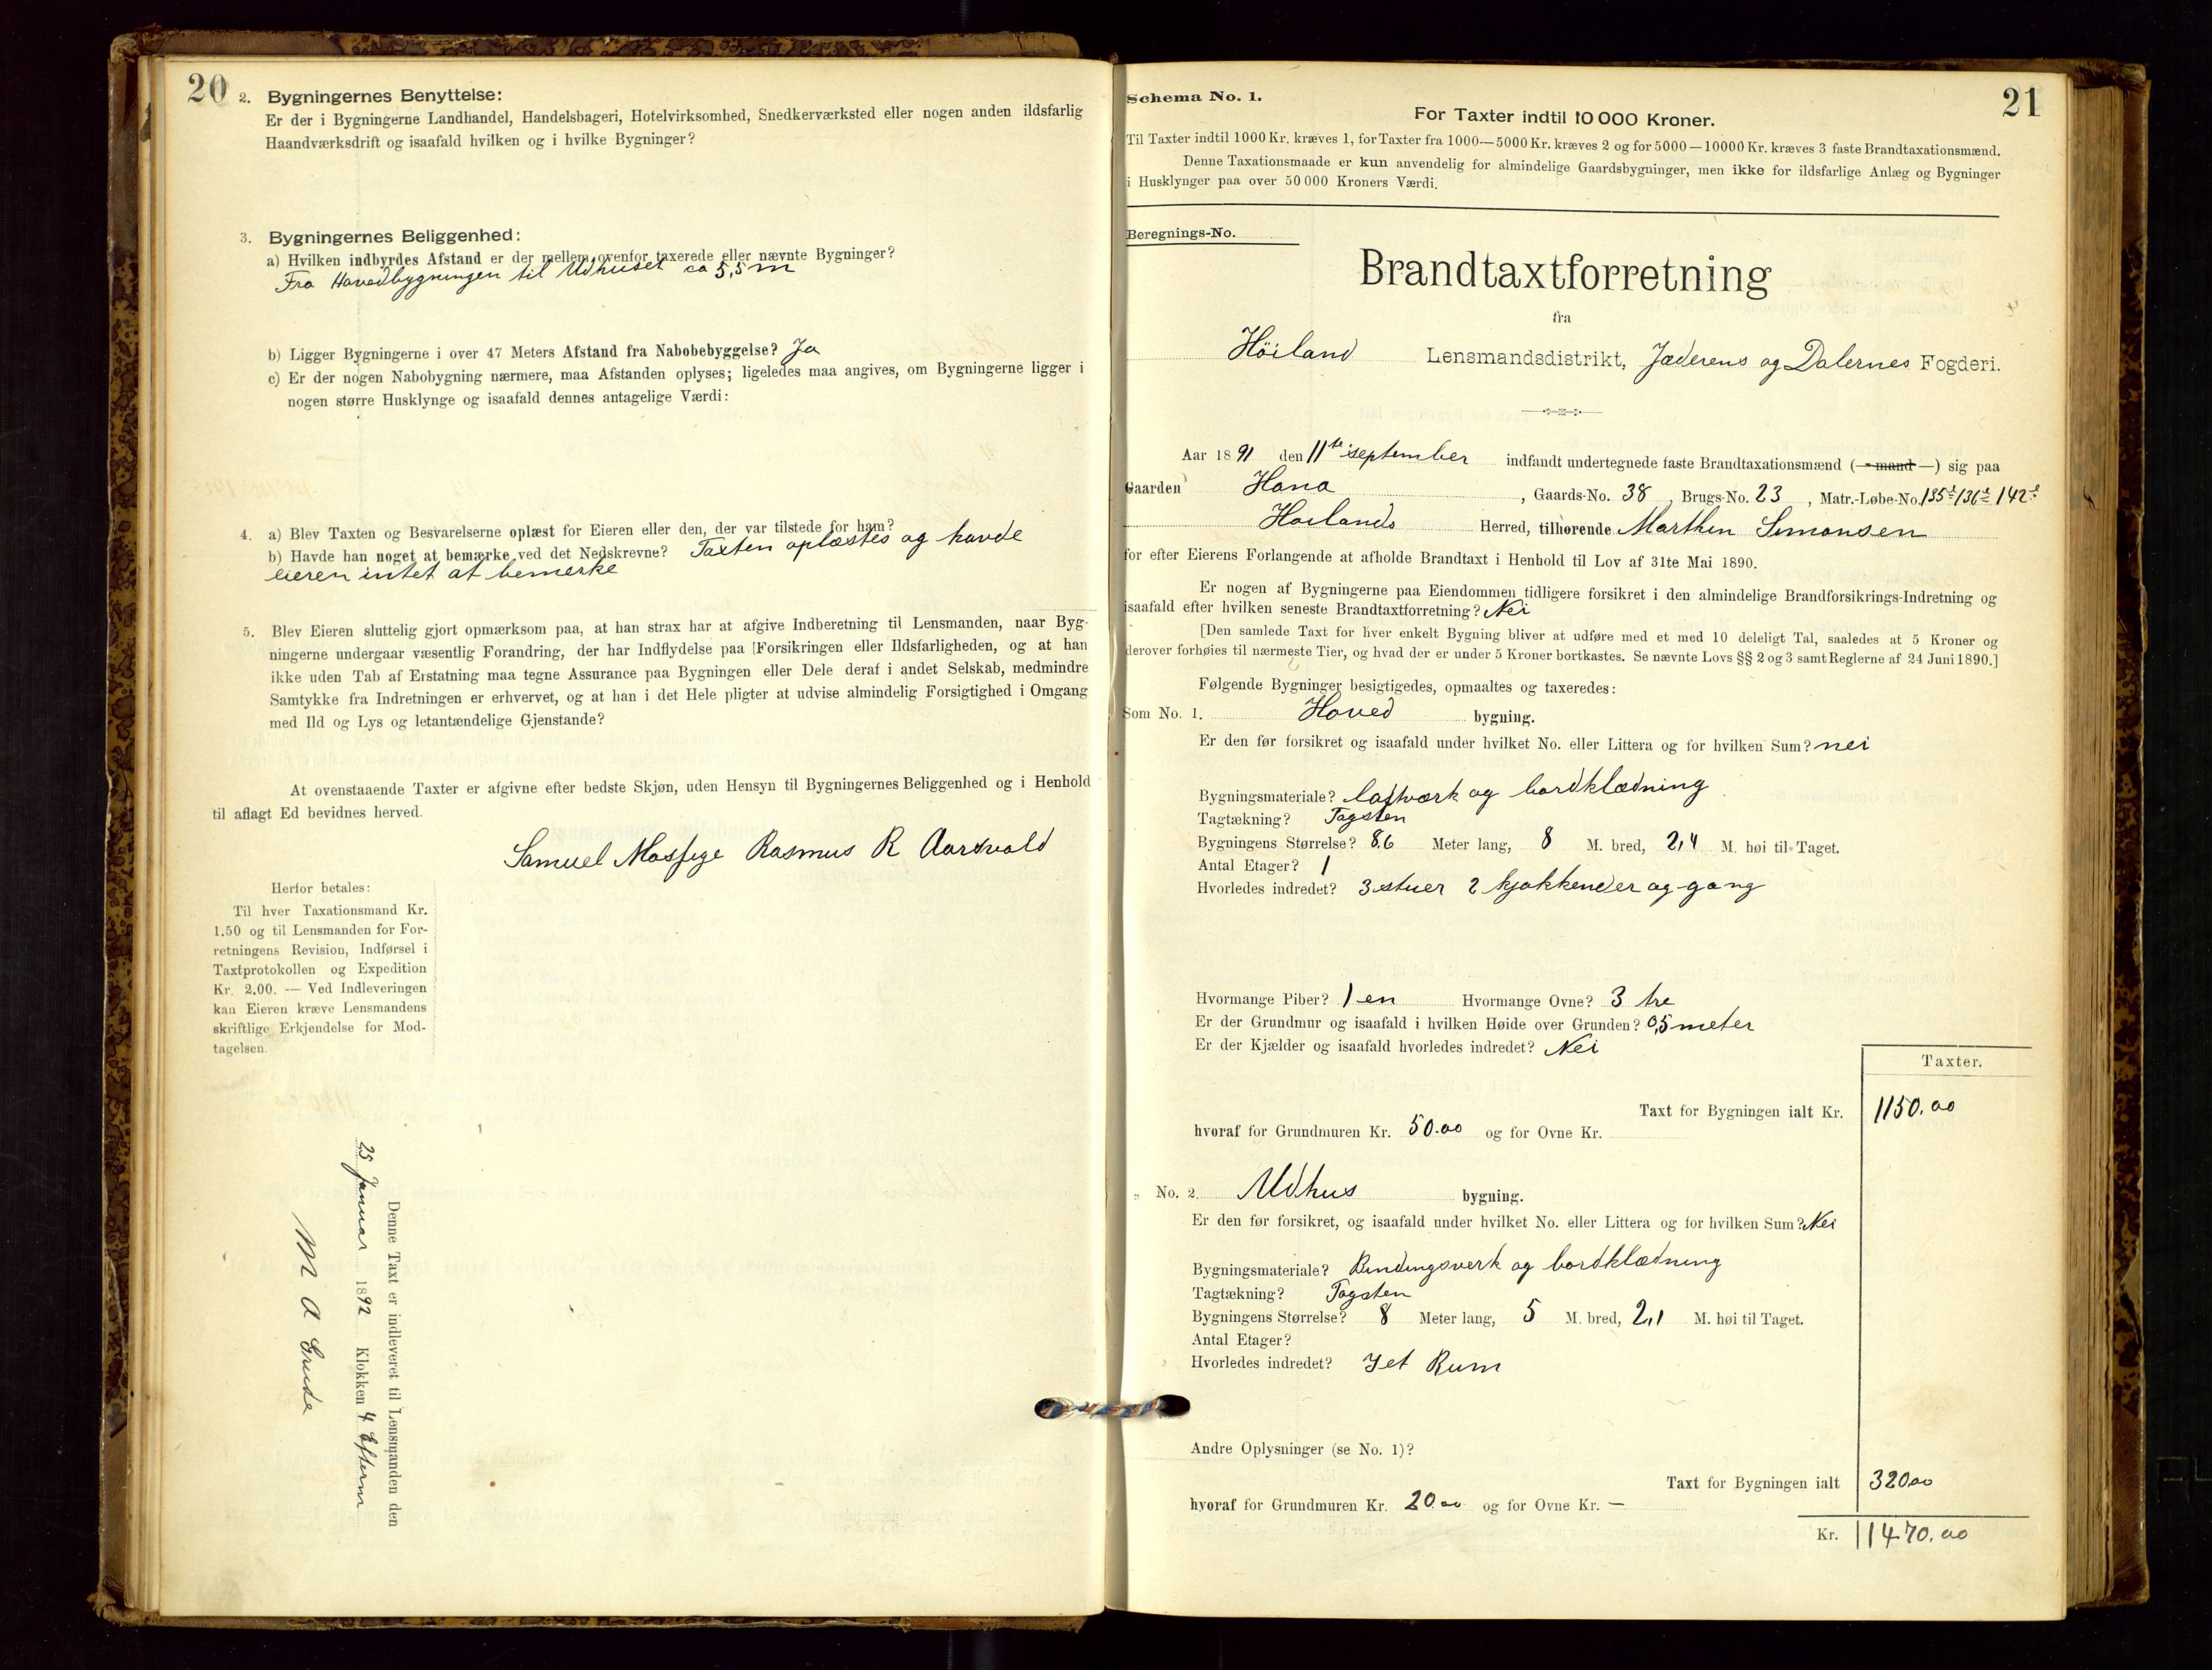 20
2. Bygningernes Benyttelse:
Er der i Bygningerne Landhandel, Handelsbageri, Hotelvirksomhed, Snedkerværksted eller nogen anden ildsfarlig
Haandværksdrift og isaafald hvilken og i hvilke Bygninger?
3. Bygningernes Beliggenhed:
a) Hvilken indbyrdes Afstand er der mellem ovenfor taxerede eller nævnte Bygninger?
Fra Hovedbygningen til Udhuset ca 5,5 m
b) Ligger Bygningerne i over 47 Meters Afstand fra Nabobebyggelse? Ja
c) Er der nogen Nabobygning nærmere, maa Afstanden oplyses; ligeledes maa angives, om Bygningerne ligger i
nogen større Husklynge og isaafald dennes antagelige Værdi:
4. a) Blev Taxten og Besvarelserne oplæst for Eieren eller den, der var tilstede for ham?
b) Havde han noget at bemærke ved det Nedskrevne? Taxten oplæstes og havde
eieren intet at bemerke
5. Blev Eieren sluttelig gjort opmærksom paa, at han strax har at afgive Indberetning til Lensmanden, naar Byg-
ningerne undergaar væsentlig Forandring, der har Indflydelse paa Forsikringen eller Ildsfarligheden, og at han
ikke uden Tab af Erstatning maa tegne Assurance paa Bygningen eller Dele deraf i andet Selskab, medmindre
Samtykke fra Indretningen er erhvervet, og at han i det Hele pligter at udvise almindelig Forsigtighed i Omgang
med Ild og Lys og letantændelige Gjenstande?
At ovenstaaende Taxter er afgivne efter bedste Skjøn, uden Hensyn til Bygningernes Beliggenhed og i Henhold
til aflagt Ed bevidnes herved.
Samuel Mossige Rasmus R Aarsvold
Herfor betales:
Til hver Taxationsmand Kr.
1.50 og til Lensmanden for For-
retningens Revision, Indførsel i
Taxtprotokollen og Expedition
Kr. 2.00. — Ved Indleveringen
kan Eieren kræve Lensmandens
skriftlige Erkjendelse for Mod-
tagelsen.
Denne Taxt er indleveret til Lensmanden den
25 Januar 1892 Klokken 4 Efterm
M A Grude
21
Schema No. 1.
For Taxter indtil 10 000 Kroner.
Til Taxter indtil 1000 Kr. kræves 1, for Taxter fra 1000—5000 Kr. kræves 2 og for 5000—10000 Kr. kræves 3 faste Brandtaxationsmænd.
Denne Taxationsmaade er kun anvendelig for almindelige Gaardsbygninger, men ikke for ildsfarlige Anlæg og Bygninger
i Husklynger paa over 50 000 Kroners Værdi.
Beregnings-No.
Brandtaxtforretning
fra
Höiland Lensmandsdistrikt, Jæderens og Dalernes Fogderi.
Aar 1891 den 11te september indfandt undertegnede faste Brandtaxationsmænd (—mand—) sig paa
Gaarden Hana, Gaards-No. 38, Brugs-No. 23, Matr.-Løbe-No. 135 136 142
Hoilands Herred, tilhørende Marthin Simonsen
for efter Eierens Forlangende at afholde Brandtaxt i Henhold til Lov af 31te Mai 1890.
Er nogen af Bygningerne paa Eiendommen tidligere forsikret i den almindelige Brandforsikrings-Indretning og
isaafald efter hvilken seneste Brandtaxtforretning? Nei
[Den samlede Taxt for hver enkelt Bygning bliver at udføre med et med 10 deleligt Tal, saaledes at 5 Kroner og
derover forhøies til nærmeste Tier, og hvad der er under 5 Kroner bortkastes. Se nævnte Lovs §§ 2 og 3 samt Reglerne af 24 Juni 1890.]
Følgende Bygninger besigtigedes, opmaaltes og taxeredes:
Som No. 1. Hoved bygning.
Er den før forsikret og isaafald under hvilket No. eller Littera og for hvilken Sum? nei
Bygningsmateriale? loftværk og bordklædning
Tagtækning? Tagsten
Bygningens Størrelse? 8,6 Meter lang, 8 M. bred, 2,4 M. høi til Taget.
Antal Etager? 1
Hvorledes indredet? 3 stuer 2 kjøkkender og gang
Hvormange Piber? 1 en Hvormange Ovne? 3 tre
Er der Grundmur og isaafald i hvilken Høide over Grunden? 0,5 meter
Er der Kjælder og isaafald hvorledes indredet? Nei
Taxter.
Taxt for Bygningen ialt Kr. 1150.00
hvoraf for Grundmuren Kr. 50.00 og for Ovne Kr.
" No. 2 Udhus bygning.
Er den før forsikret, og isaafald under hvilket No. eller Littera og for hvilken Sum? Nei
Bygningsmateriale? Bindingsverk og bordklædning
Tagtækning? Tagsten
Bygningens Størrelse? 8 Meter lang, 5 M. bred, 2,1 M. høi til Taget.
Antal Etager?
Hvorledes indredet? Jet Rum
Andre Oplysninger (se No. 1)?
Taxt for Bygningen ialt 320.00
hvoraf for Grundmuren Kr. 20.00 og for Ovne Kr. —
Kr. 1470.00